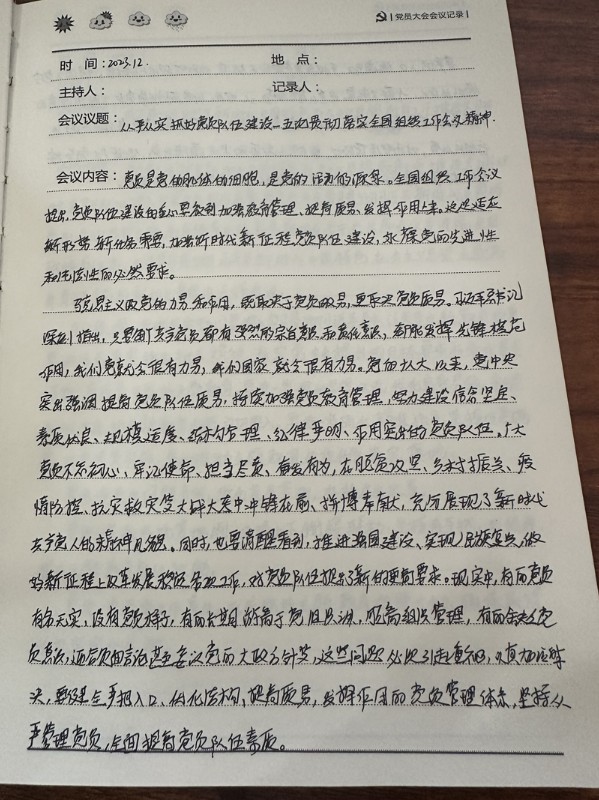 党员大会会议记录
时 间：2023.12. 地 点：
主持人： 记录人：
会议议题：从严从实抓好党员队伍建设—五论贯彻落实全国组织工作会议精神.
会议内容：党员是党的肌体的细胞，是党的活动的源泉。全国组织工作会议
提出，党员队伍建设的重心要放到加强教育管理、提高质量、发挥作用上来。这是适应
新形势新任务需要，加强新时代新征程党员队伍建设，永葆党的先进性
和纯洁性的必然要求。
马克思主义政党的力量和作用，既取决于党员数量，更取决党员质量。习近平总书记
深刻指出，只要我们共产党员都有强烈的宗旨意识和责任意识，都能发挥先锋模范
作用，我们党就会很有力量，我们国家就会很有力量。党的十八大以来，党中央
突出强调提高党员队伍质量，持续加强党员教育管理，努力建设信念坚定、
素质优良、规模适度、结构合理、纪律严明、作用突出的党员队伍。广大
党员不忘初心、牢记使命、担当尽责、奋发有为，在脱贫攻坚、乡村振兴、疫
情防控、抗灾救灾等大战大考中冲锋在前、拼搏奉献，充分展现了新时代
共产党人的精神风貌。同时，也要清醒看到，推进强国建设、实现民族复兴，做
好新征程上改革发展稳定各项工作，对党员队伍提出了新的更高要求。现实中，有的党员
有名无实，没有党员样子，有的长期游离于党组织，脱离组织管理，有的缺乏党
员意识，还有的党员言论甚至妄议党的大政方针等，这些问题必须引起重视，认真加以解
决，要健全严把入口、优化结构、提高质量，发挥作用的党员管理体系，坚持从
严管理党员，全面提高党员队伍素质。